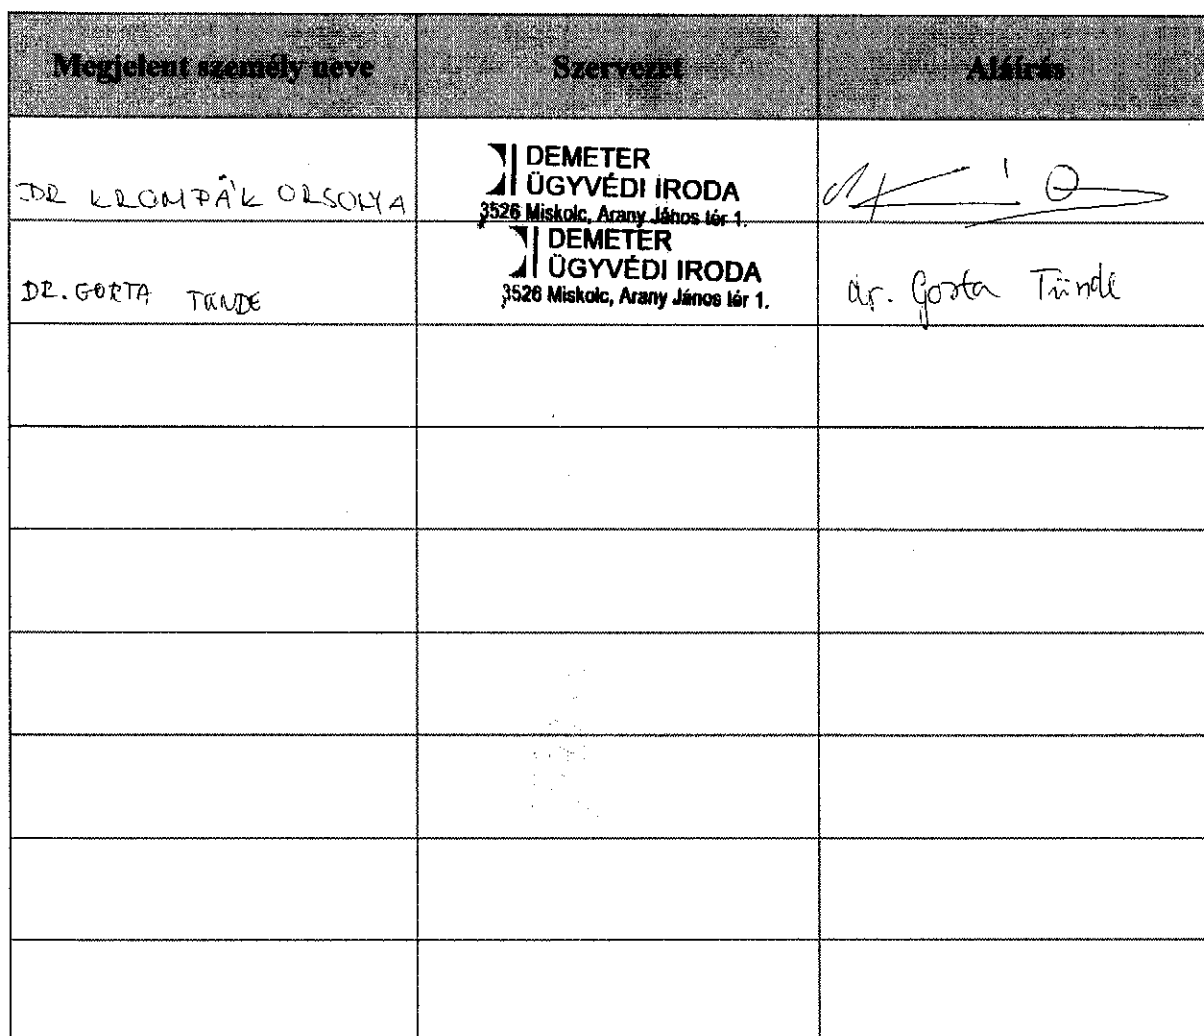 Megjelent személy neve
Szervezet
Aláírás
DR KROMPÁK ORSOLYA
DEMETER
ÜGYVÉDI IRODA
3526 Miskolc, Arany János tér 1.
DR. GORTA TÜNDE
DEMETER
ÜGYVÉDI IRODA
3526 Miskolc, Arany János tér 1.
dr. Gorta Tünde